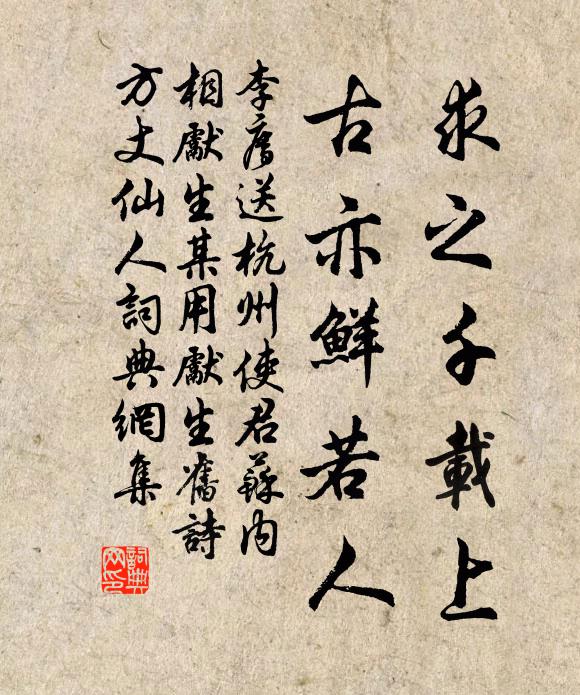 求之千載上
古亦鮮若人
李廌送杭州使君蘇内
相獻生某用獻生舊詩
方丈仙人詞典網集
詞典网印